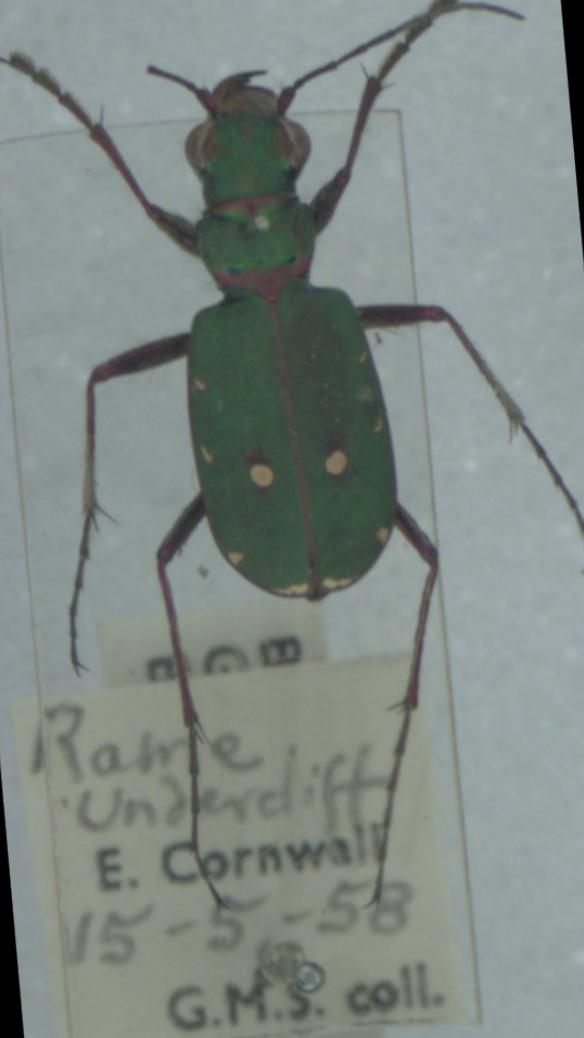 Rame
Undercliff
E. Cornwall
15-5-58
G.M.S. coll.